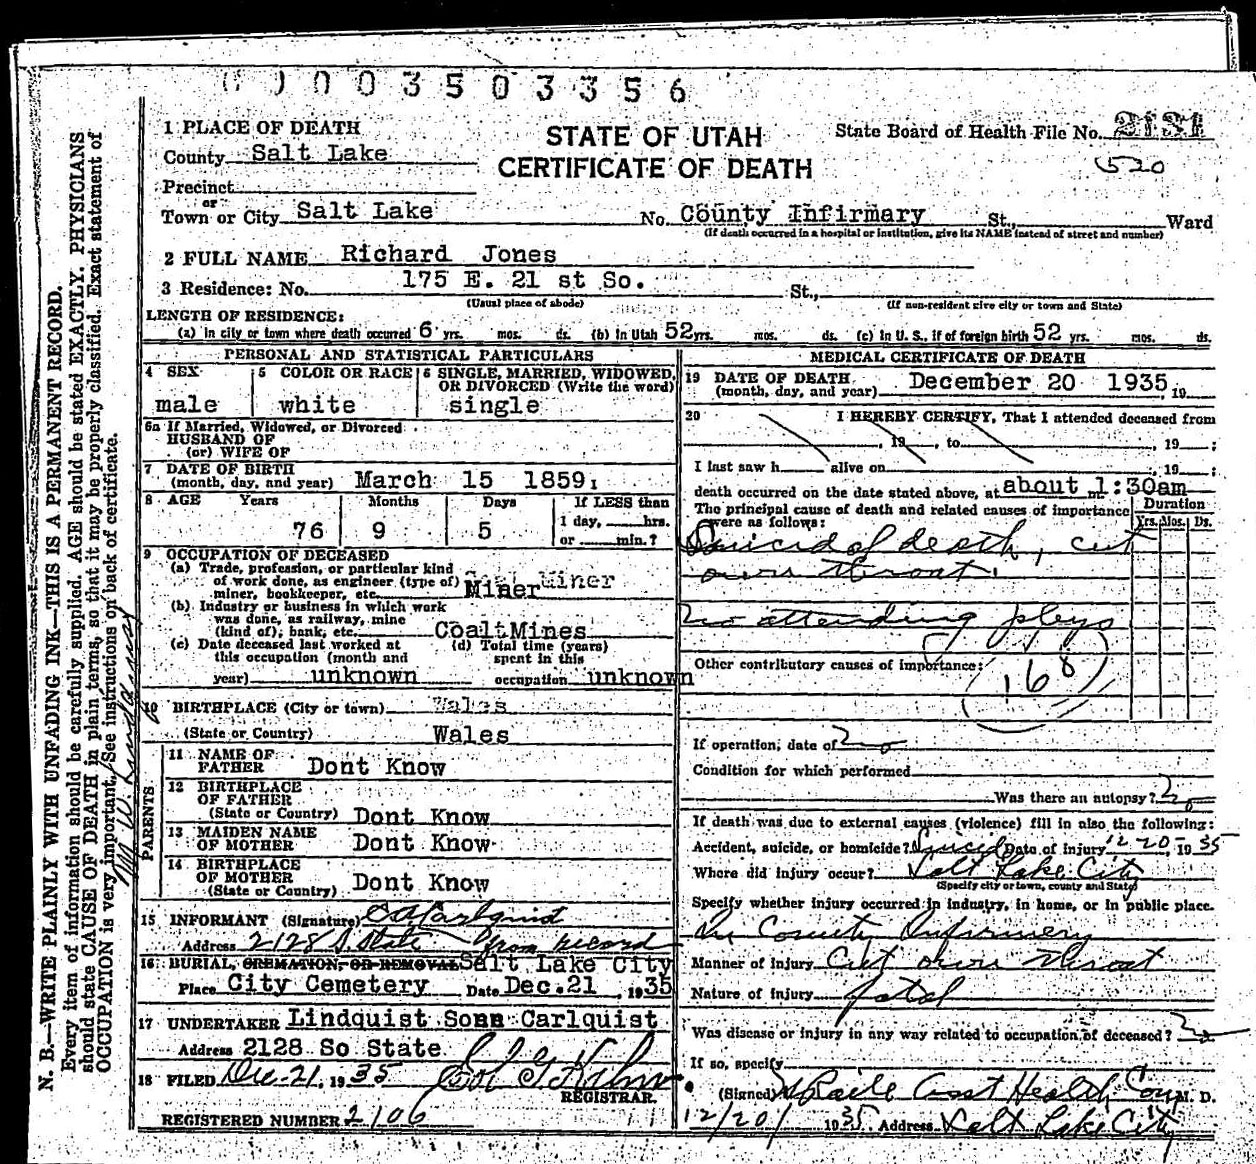 0 0 3 5 0 3 3 5 6
1 PLACE OF DEATH
STATE OF UTAH
CERTIFICATE OF DEATH
State Board of Health File No. 2131
520
County Salt Lake
Precinct
or
Town or City Salt Lake No. County Infirmary St., Ward
(If death occurred in a hospital or institution, give its NAME instead of street and number)
2 FULL NAME Richard Jones
3 Residence: No. 175 E. 21 st So. St.,
(Usual place of abode) (If non-resident give city or town and State)
LENGTH OF RESIDENCE:
(a) in city or town where death occurred 6 yrs. mos. ds. (b) in Utah 52 yrs. mos. ds. (c) in U. S., if of foreign birth 52 yrs. mos. ds.
PERSONAL AND STATISTICAL PARTICULARS
4 SEX male
5 COLOR OR RACE white
6 SINGLE, MARRIED, WIDOWED, OR DIVORCED (Write the word) single
6a If Married, Widowed, or Divorced
HUSBAND OF
(or) WIFE OF
7 DATE OF BIRTH
(month, day, and year) March 15 1859
8 AGE Years Months Days If LESS than
76 9 5 1 day, hrs.
or min.?
9 OCCUPATION OF DECEASED
(a) Trade, profession, or particular kind
of work done, as engineer (type of) Miner
miner, bookkeeper, etc. Miner
(b) Industry or business in which work
was done, as railway, mine
(kind of), bank, etc. Coal Mines
(c) Date deceased last worked at
this occupation (month and
year) unknown
(d) Total time (years)
spent in this
occupation unknown
10 BIRTHPLACE (City or town) Wales
(State or Country) Wales
PARENTS
11 NAME OF
FATHER Dont Know
12 BIRTHPLACE
OF FATHER
(State or Country) Dont Know
13 MAIDEN NAME
OF MOTHER Dont Know
14 BIRTHPLACE
OF MOTHER
(State or Country) Dont Know
15 INFORMANT (Signature) C A Carlquist
Address 2128 S. State from record
16 BURIAL, CREMATION, OR REMOVAL Salt Lake City
Place City Cemetery Date Dec. 21, 1935
17 UNDERTAKER Lindquist Sons Carlquist
Address 2128 So State
18 FILED Dec-21, 1935
REGISTRAR.
REGISTERED NUMBER 2106
MEDICAL CERTIFICATE OF DEATH
19 DATE OF DEATH
(month, day, and year) December 20 1935, 19
20 I HEREBY CERTIFY, That I attended deceased from
, 19 , to , 19 ;
I last saw h alive on , 19 ;
death occurred on the date stated above, at about 1:30am m.
The principal cause of death and related causes of importance
were as follows:
Duration
Yrs. Mos. Ds.
Suicid of death, cut
own throat.
no attending phys
Other contributory causes of importance:
168
If operation, date of no
Condition for which performed
Was there an autopsy? no
If death was due to external causes (violence) fill in also the following:
Accident, suicide, or homicide? Suicid Date of injury 12-20, 1935
Where did injury occur? Salt Lake City
(Specify city or town, county and State)
Specify whether injury occurred in industry, in home, or in public place.
In County Infirmery
Manner of injury Cut own throat
Nature of injury fatal
Was disease or injury in any way related to occupation of deceased? no
If so, specify
(Signed) Asst Health Com M. D.
12/20/1935. Address Salt Lake City
N. B.—WRITE PLAINLY WITH UNFADING INK—THIS IS A PERMANENT RECORD.
Every item of information should be carefully supplied. AGE should be stated EXACTLY. PHYSICIANS
should state CAUSE OF DEATH in plain terms, so that it may be properly classified. Exact statement of
OCCUPATION is very important. (See instructions on back of certificate.